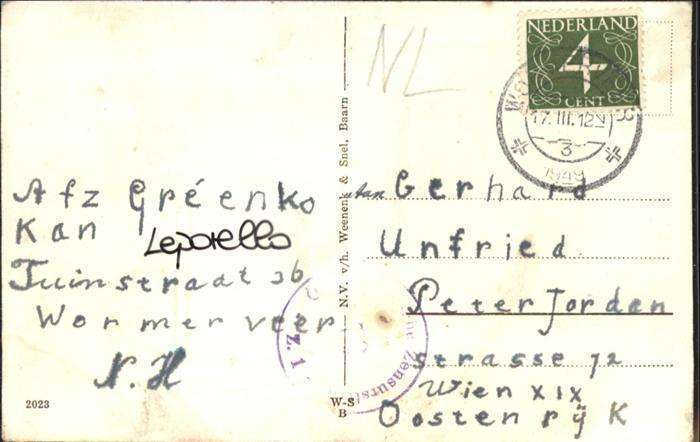 NL
NEDERLAND
4
CENT
17.III.12
3
1949
Afz Gréenko
Kan
Leporello
Tuinstraat 36
Wormerveer
N.H
2023
N.V. v/h. Weenenk & Snel, Baarn
W-S
B
aan Gerhard
Unfried
Peter Jordan
strasse 72
Wien XIX
Oostenrÿk
Zensurst
Z. 1